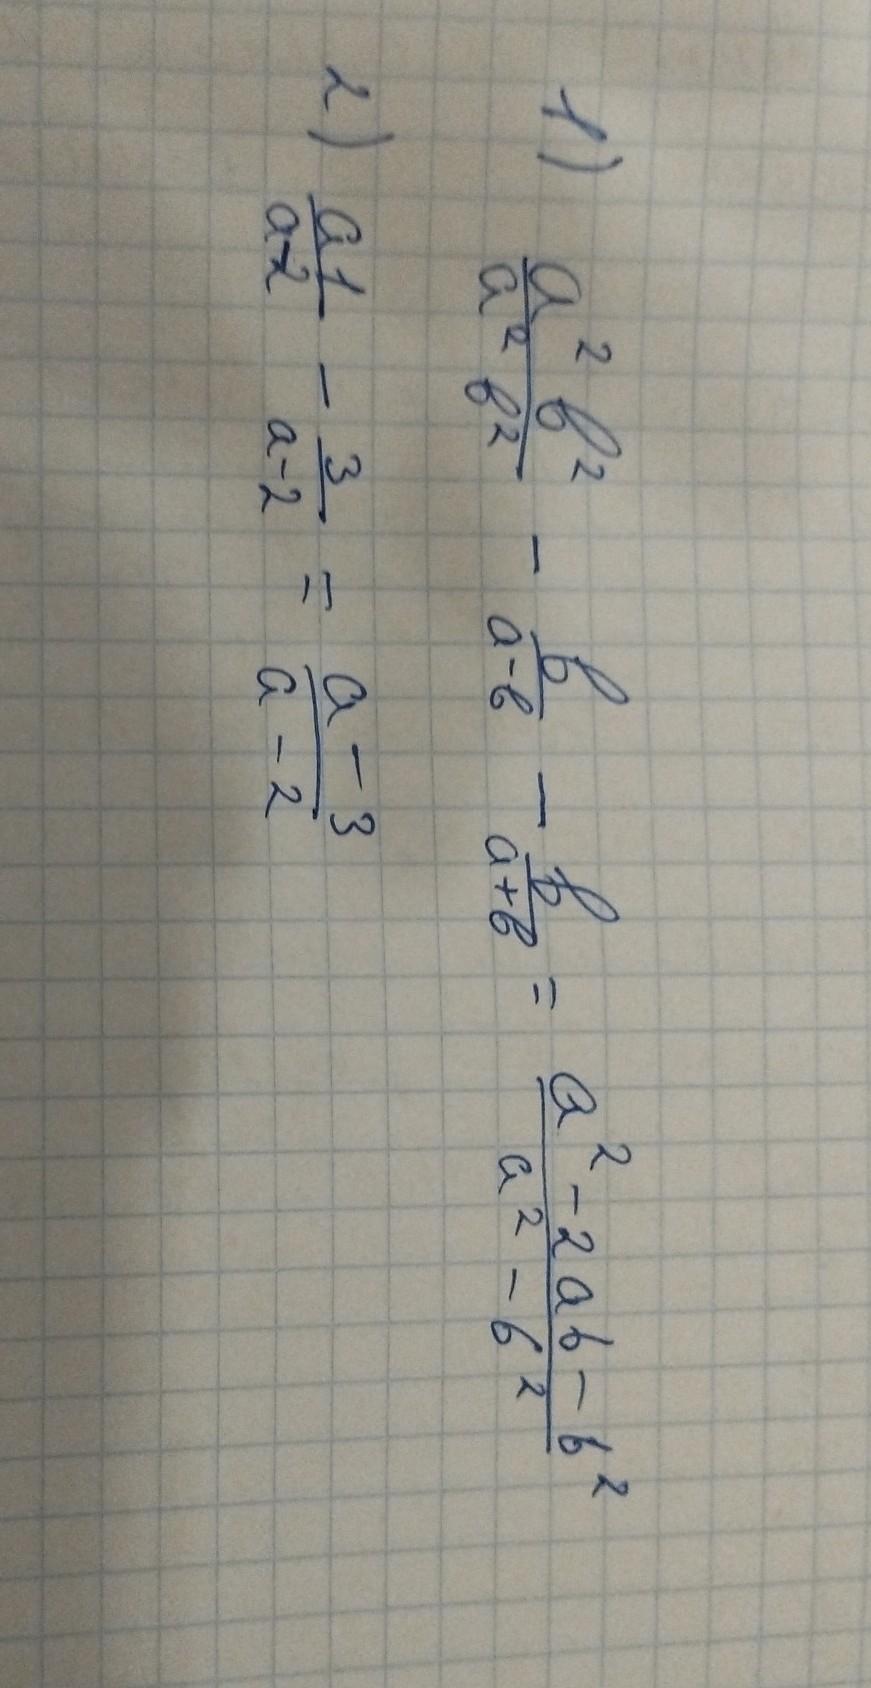 1) a² b² / a² b² - b / a-b - b / a+b = a² - 2ab - b² / a² - b²
2) a 1 / a-2 - 3 / a-2 = a - 3 / a - 2